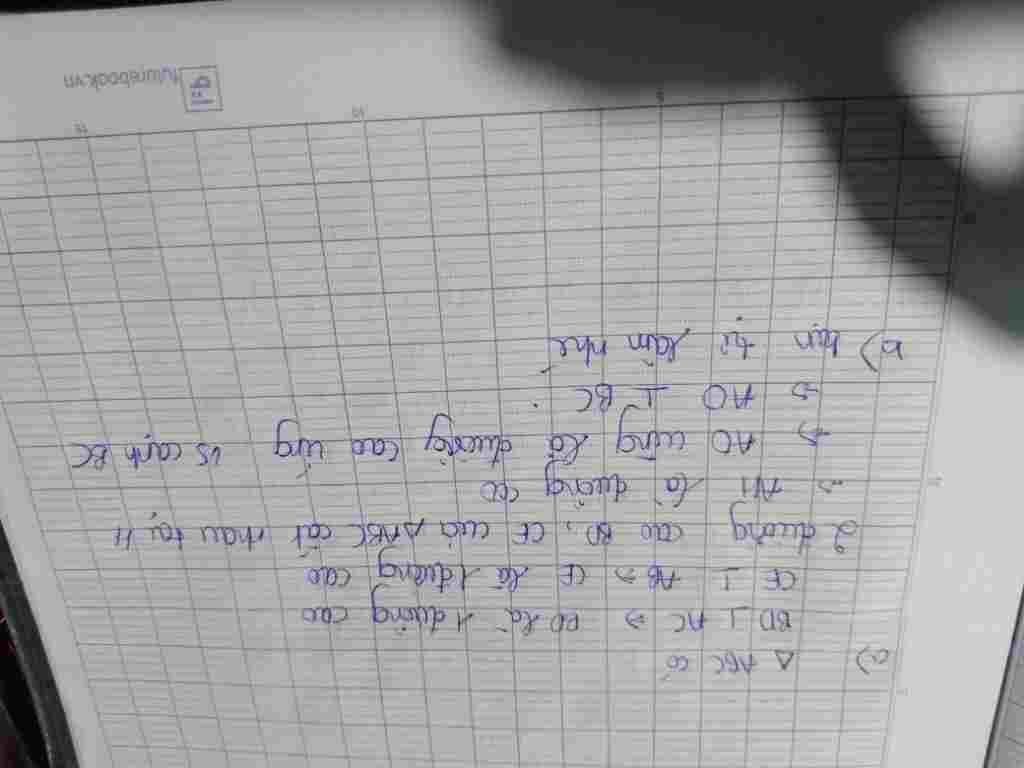 a) △ ABC có
BD ⊥ AC ⇒ BD là 1 đường cao
CE ⊥ AB ⇒ CE là 1 đường cao
2 đường cao BD, CE của △ABC cắt nhau tại H
⇒ AH là đường cao
⇒ AO cũng là đường cao ứng vs cạnh BC
⇒ AO ⊥ BC.
b) bạn tự làm nhé
5
10
15
futurebook.vn